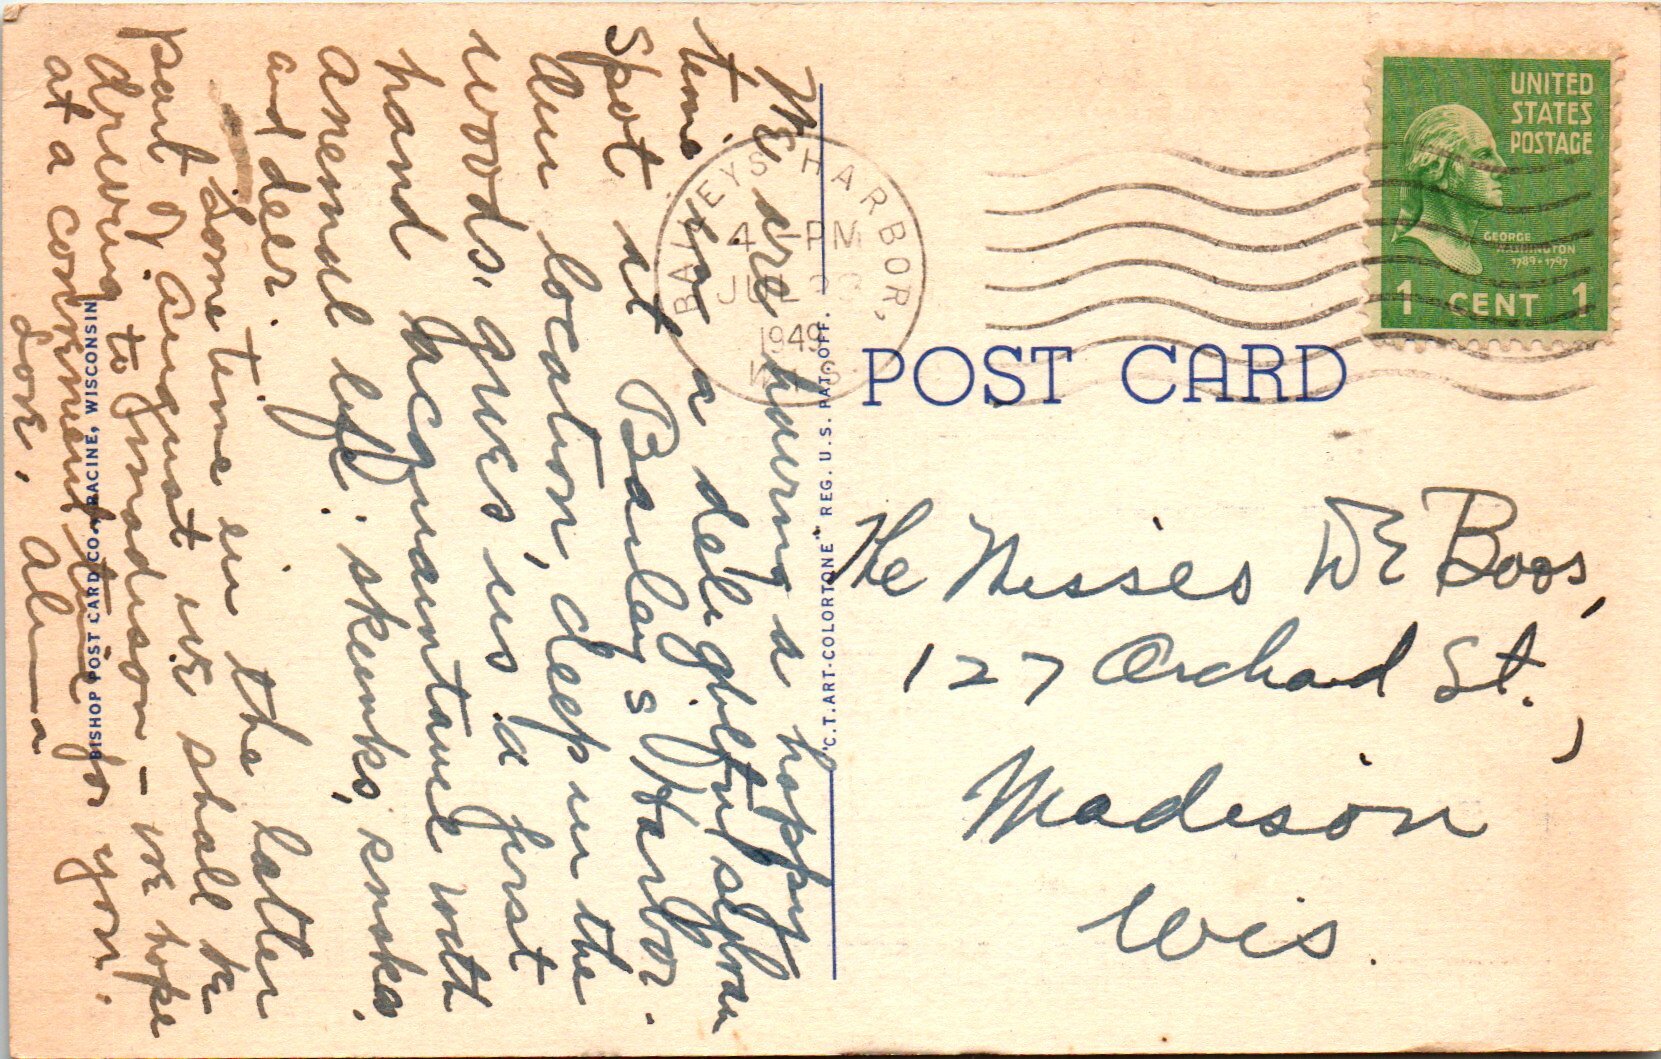 We are having a happy
time in a delightful sylvan
spot at Bailey's Harbor.
Our location, deep in the
woods, gives us a first
hand acquaintance with
animal life: skunks, snakes,
and deer.
Some time in the latter
part of August we shall be
driving to Madison – we hope
at a convenient time for you.
Love, Alma
BISHOP POST CARD CO., RACINE, WISCONSIN
"C.T. ART-COLORTONE" REG. U.S. PAT. OFF.
BAILEYS HARBOR,
4 - PM
JUL 23
1949
WIS.
UNITED
STATES
POSTAGE
GEORGE
WASHINGTON
1789-1797
1 CENT 1
POST CARD
The Misses De Boos,
127 Orchard St.,
Madison
Wis.